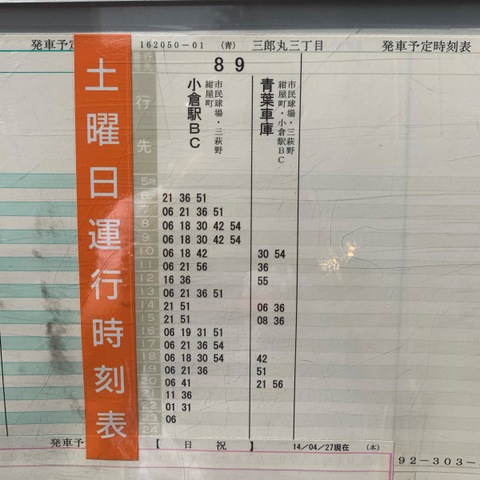 発車予定 162050-01 (青) 三郎丸三丁目 発車予定時刻表
土曜日運行時刻表
行先
89
小倉駅BC
市民球場・三萩野
紺屋町
青葉車庫
市民球場・三萩野
紺屋町・小倉駅BC
5時
6 21 36 51
7 06 21 36 51
8 06 18 30 42 54
9 06 18 30 42 54
10 06 18 42 30 54
11 06 21 56 36
12 16 36 55
13 06 21 36 51
14 21 51 06 36
15 21 51 08 36
16 06 19 31 51
17 06 21 36 54
18 06 18 30 54 42
19 06 21 36 51
20 06 41 21 56
21 11 36
22 01 31
23 06
24
発車予定 【 日 祝 】 14/04/27現在 (木)
92-303-